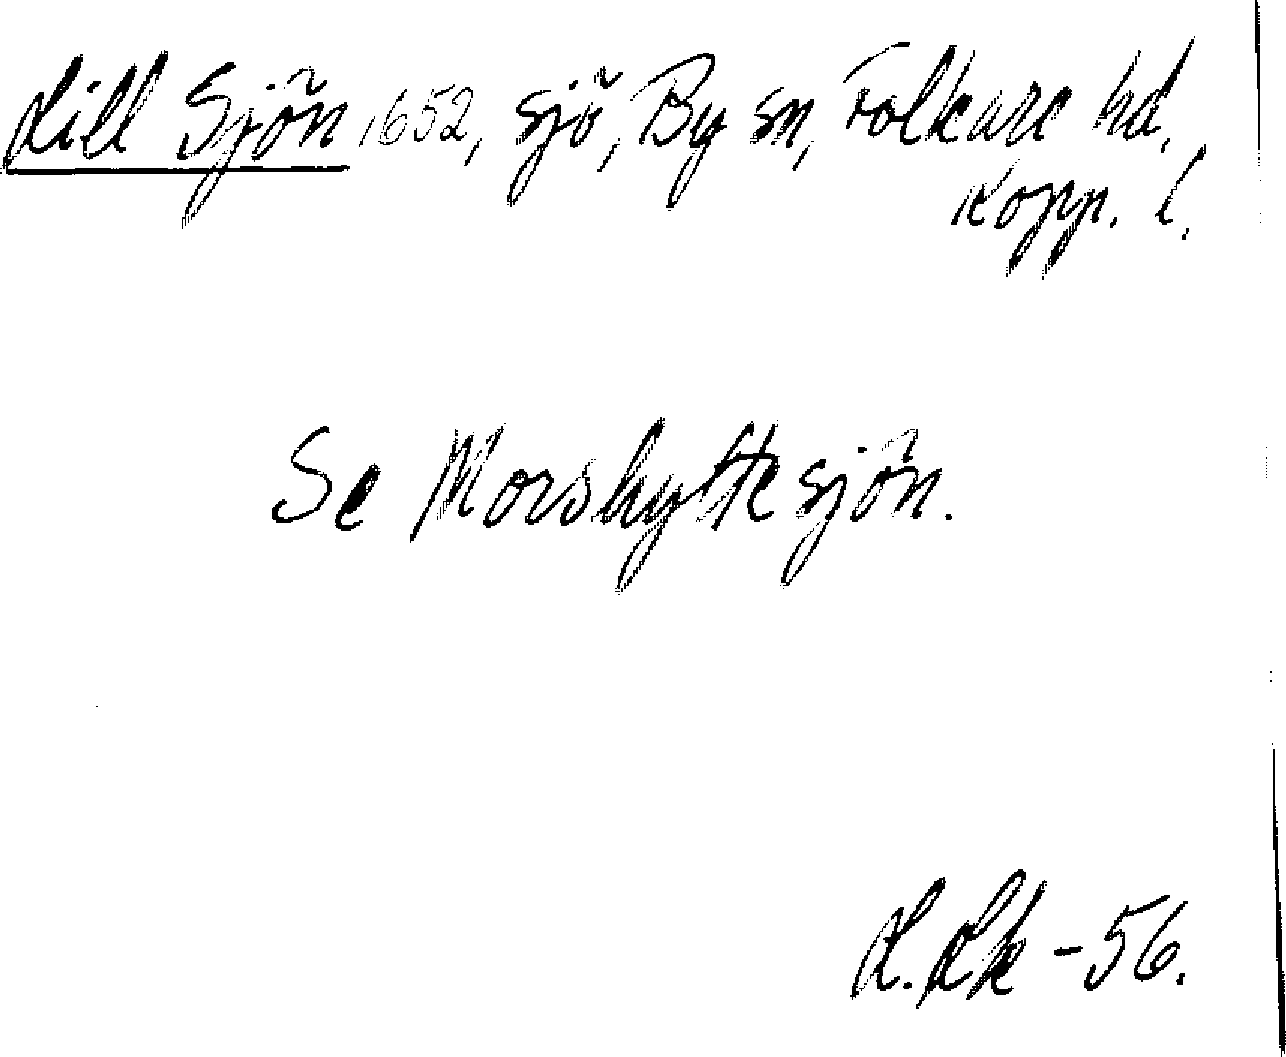 Lill Sjön 1652, sjö, By sn, Folkare hd,
Kopp. l.
Se Morshyttesjön.
L. Lk -56.